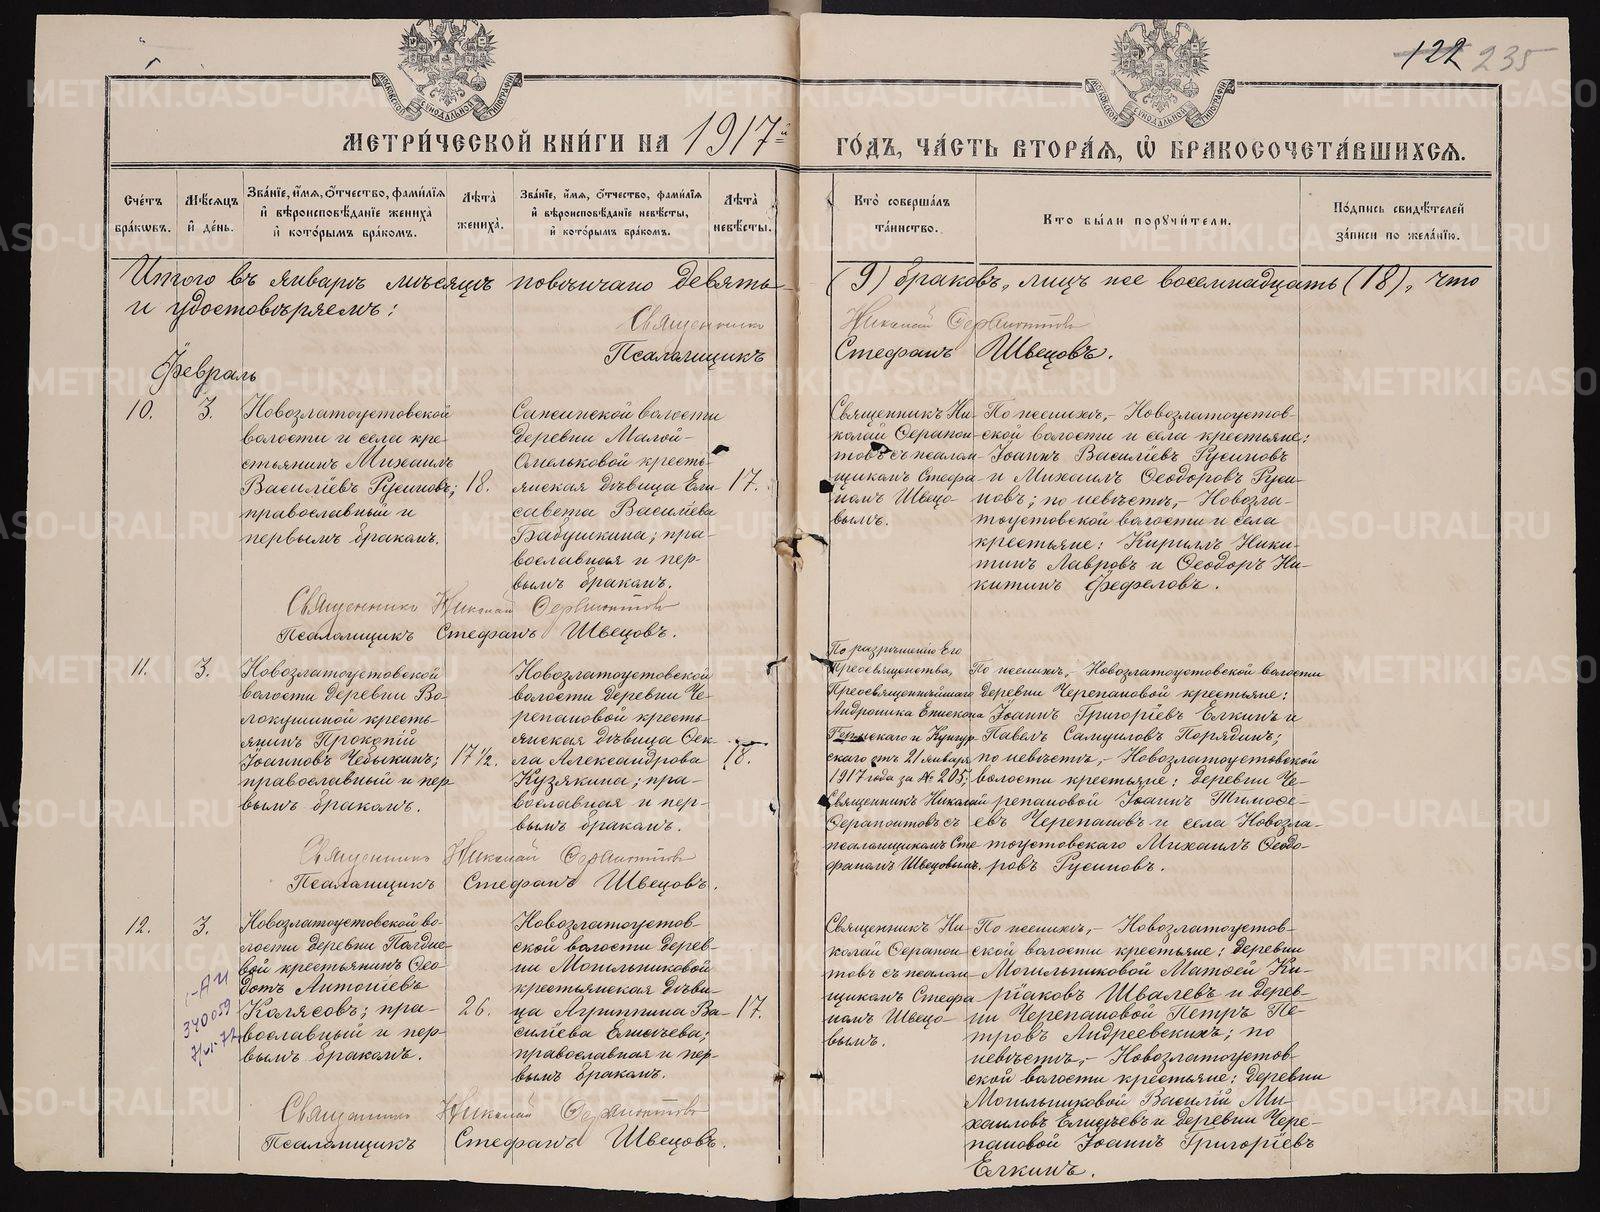 122 235
МОСКОВСКОЙ СѴНОДАЛЬНОЙ ТИПОГРАФІИ
МОСКОВСКОЙ СѴНОДАЛЬНОЙ ТИПОГРАФІИ
МЕТРИ́ЧЕСКОЙ КНИ́ГИ НА 1917й
ГО́ДЪ, ЧА́СТЬ ВТОРА́Я, Ѡ БРАКОСОЧЕТА́ВШИХСЯ.
Сче́тъ бра́ковъ.
Мѣ́сяцъ и де́нь.
Зва́нїе, и́мя, о́тчество, фами́лїя и вѣроисповѣ́данїе жениха̀ и кото́рымъ бра́комъ.
Лѣта̀ жениха̀.
Зва́нїе, и́мя, о́тчество, фами́лїя и вѣроисповѣ́данїе невѣ́сты, и кото́рымъ бра́комъ.
Лѣта̀ невѣ́сты.
Кто̀ соверша́лъ та́инство.
Кто бы́ли поручи́тели.
По́дпись свидѣ́телей за́писи по жела́нїю.
Итого въ январѣ мѣсяцѣ повѣнчано девять
(9) браковъ, лицъ же восемнадцать (18), что
и удостовѣряемъ:
Священникъ Николай Серапионтовъ
Псаломщикъ Стефанъ Швецовъ.
Февраль
10.
3.
Новозлатоустовской
волости и села кре-
стьянинъ Михаилъ
Василіевъ Русиновъ;
православный и
первымъ бракомъ.
18.
Сажинской волости
деревни Малой-
Омельковой кресть-
янская дѣвица Ели-
савета Василіева
Бабушкина; пра-
вославная и пер-
вымъ бракомъ.
17.
Священникъ Ни-
колай Серапион-
товъ съ псалом-
щикомъ Стефа-
номъ Швецо-
вымъ.
По женихѣ,- Новозлатоустов-
ской волости и села крестьяне:
Іоаннъ Василіевъ Русиновъ
и Михаилъ Ѳеодоровъ Руси-
новъ; по невѣстѣ,- Новозла-
тоустовской волости и села
крестьяне: Кириллъ Ники-
тинъ Лавровъ и Ѳеодоръ Ни-
китинъ Фефеловъ.
Священникъ Николай Серапионтовъ
Псаломщикъ Стефанъ Швецовъ.
11.
3.
Новозлатоустовской
волости деревни Во-
локушиной кресть-
янинъ Прокопій
Іоанновъ Чебыкинъ;
православный и пер
вымъ бракомъ.
17 1/2.
Новозлатоустовской
волости деревни Че-
репановой кресть-
янская дѣвица Ѳек
ла Александрова
Кузякина; пра-
вославная и пер-
вымъ бракомъ.
18.
По разрѣшенію Его
Преосвященства,
Преосвященнѣйшаго
Андроника Епископа
Пермскаго и Кунгур
скаго отъ 21 января
1917 года за № 205,
Священникъ Николай
Серапионтовъ съ
псаломщикомъ Сте
фаномъ Швецовымъ.
По женихѣ,- Новозлатоустовской волости
деревни Черепановой крестьяне:
Іоаннъ Григоріевъ Елкинъ и
Павелъ Самуиловъ Порядинъ;
по невѣстѣ,- Новозлатоустовской
волости крестьяне: деревни Че-
репановой Іоаннъ Тимоѳе-
евъ Черепановъ и села Новозла-
тоустовскаго Михаилъ Ѳеодо-
ровъ Русиновъ.
Священникъ Николай Серапионтовъ
Псаломщикъ Стефанъ Швецовъ.
12.
3.
Новозлатоустовской во-
лости деревни
вой крестьянинъ Ѳео-
дотъ Антоніевъ
Колясовъ; пра-
вославный и пер-
вымъ бракомъ.
26.
Новозлатоустов
ской волости дерев-
ни Могильниковой
крестьянская дѣви-
ца Агриппина Ва-
силіева Елисѣева;
православная и пер-
вымъ бракомъ.
17.
Священникъ Ни-
колай Серапион-
товъ съ псалом-
щикомъ Стефа
номъ Швецо-
вымъ.
По женихѣ,- Новозлатоустов-
ской волости крестьяне: деревни
Могильниковой Матѳей Ки-
ріаковъ Швалевъ и дерев-
ни Черепановой Петръ Пе-
тровъ Андреевскихъ; по
невѣстѣ,- Новозлатоустов-
ской волости крестьяне: деревни
Могильниковой Василій Ми-
хаиловъ Елисѣевъ и деревни Чере-
пановой Іоаннъ Григоріевъ
Елкинъ.
Священникъ Николай Серапионтовъ
Псаломщикъ Стефанъ Швецовъ.
METRIKI.GASO-URAL.RU